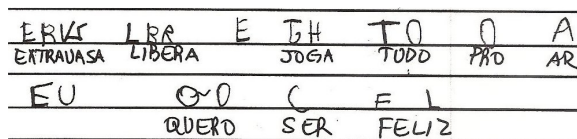 ERVS LBR E GH TO O A
EXTRAVASA LIBERA JOGA TUDO PRO AR
EU O O C F L
QUERO SER FELIZ